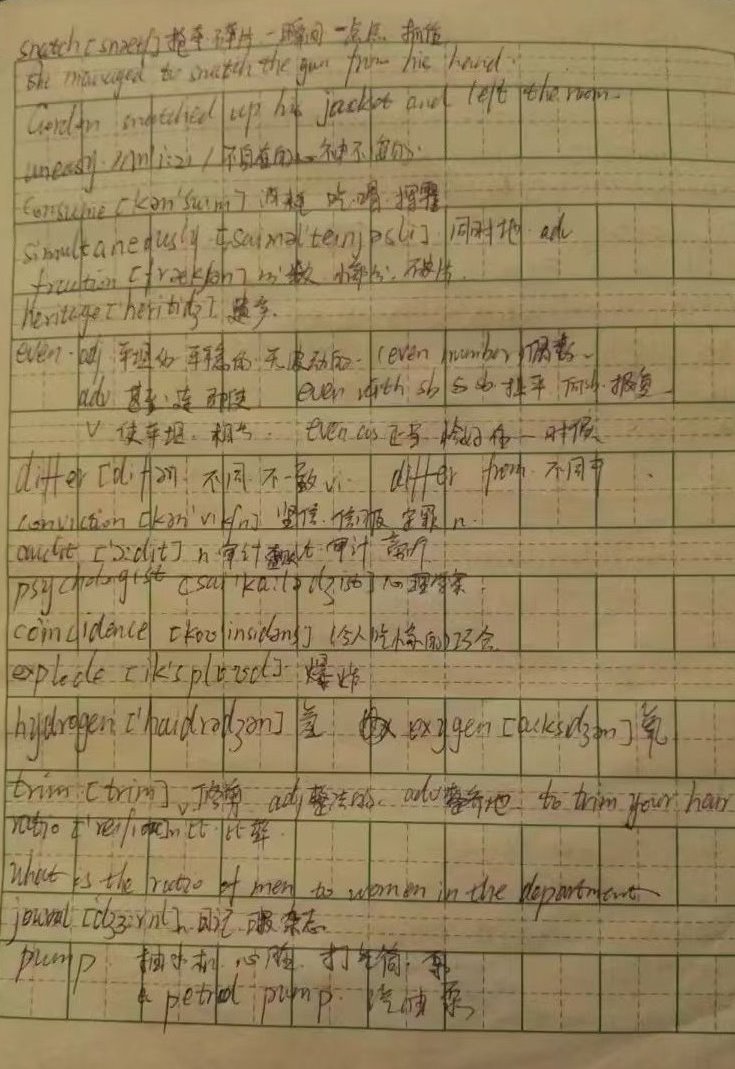 snatch [snætʃ] 抢夺 碎片 一瞬间 一点点 抓住
She managed to snatch the gun from his hand.
Gordon snatched up his jacket and left the room.
uneasy /ʌn'i:zi/ 不自在的 心神不宁的.
consume [kən'su:m] 消耗 吃.喝 挥霍
simultaneously [saiməl'teinjəsli] 同时地 adv
fraction [frækʃən] 分数 小部分. 碎片.
heritage ['heritidʒ]. 遗产.
even adj 平坦的 平稳的 无波动的. (even number) 偶数.
adv 甚至.连 即使 even with sb 与sb.扯平 向sb.报复
v 使平坦. 相当. even as 正当 恰好在一时候.
differ [difər] 不同.不一致 vi. differ from 不同于.
conviction [kən'vikʃn] 坚信.信服 定罪 n.
audit ['ɔ:dit] n 审计 vt 审计
psychologist [sai'ka:lədʒist] 心理学家.
coincidence [koʊ'insidəns] (令人吃惊的)巧合
explode [ik'sploʊd] 爆炸
hydrogen ['haidrədʒən] 氢 oxygen [a:ksdʒən] 氧
trim [trim] v 修剪 adj 整洁的. adv 整齐地 to trim your hair
ratio ['reiʃioʊ] n 比 比率.
what is the ratio of men to women in the department
journal [dʒɜ:rnl] n 日记 杂志
pump 抽水机.心脏 打气筒.泵
a petrol pump. 汽油泵